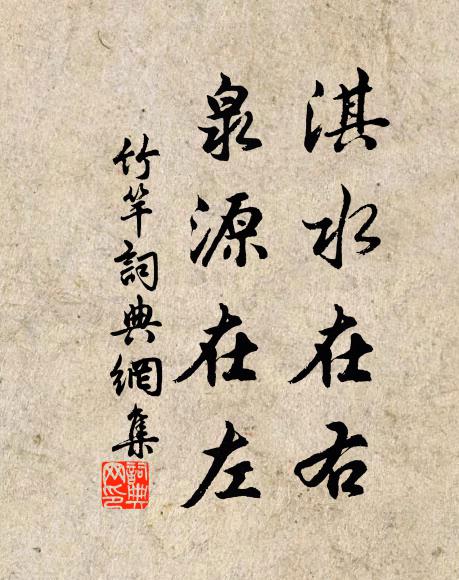 淇水在右
泉源在左
竹竿詞典網集
詞典
网印